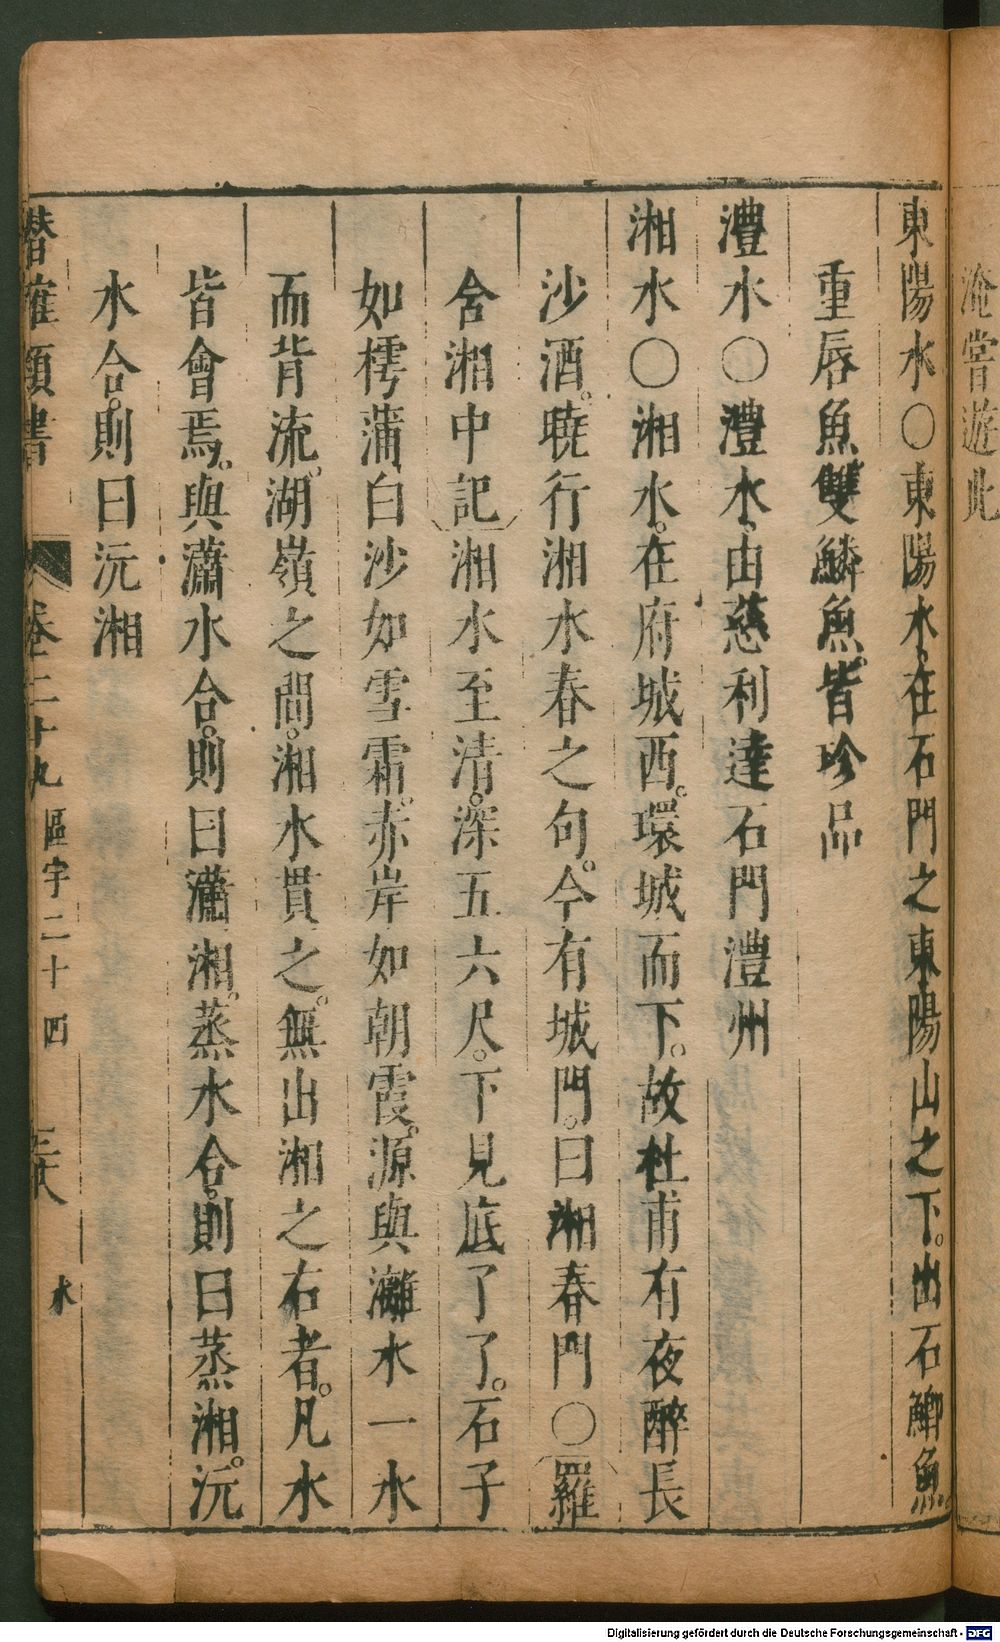 淹嘗遊此
東陽水○東陽水在石門之東陽山之下。出石鯽魚
重唇魚雙鱗魚。皆珍品
澧水○澧水由慈利達石門澧州
湘水○湘水。在府城西。環城而下。故杜甫有夜醉長
沙酒。曉行湘水春之句。今有城門。曰湘春門○羅
含湘中記湘水至清。深五六尺。下見底了了。石子
如樗蒲白沙如雪霜。赤岸如朝霞。源與灕水一水
而背流。湖嶺之間。湘水貫之。無出湘之右者。凡水
皆會焉。與瀟水合。則曰瀟湘。蒸水合。則曰蒸湘。沅
水合。則曰沅湘
潛確類書 卷二十九 區宇二十四 水
Digitalisierung gefördert durch die Deutsche Forschungsgemeinschaft - DFG